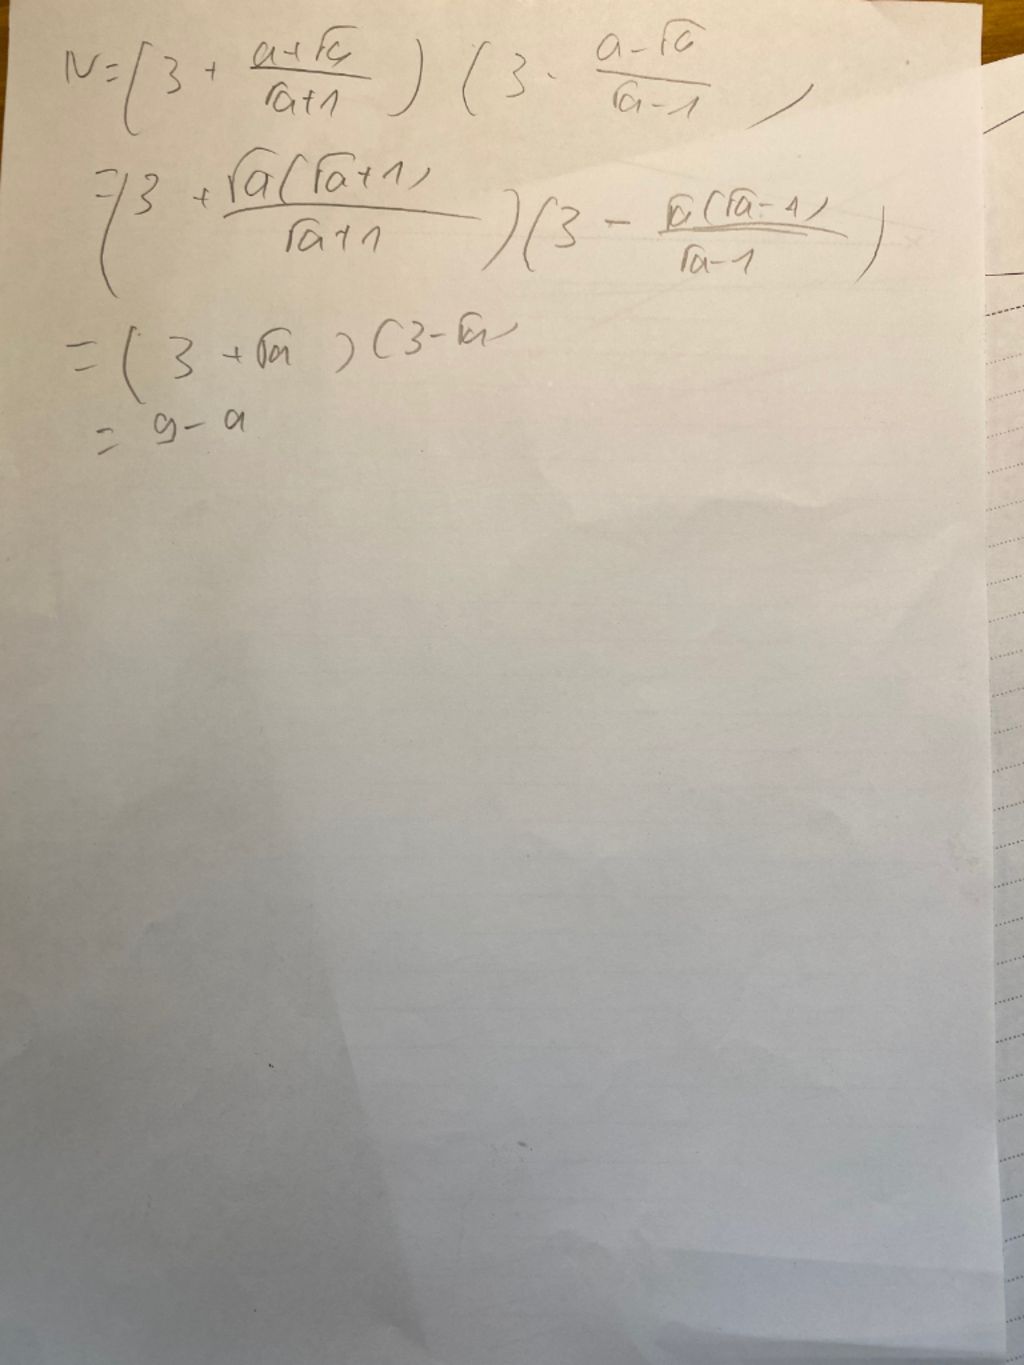 N = (3 + (a+√a)/(√a+1)) (3 - (a-√a)/(√a-1))
= (3 + √a(√a+1)/(√a+1)) (3 - √a(√a-1)/(√a-1))
= (3 + √a) (3-√a)
= 9 - a